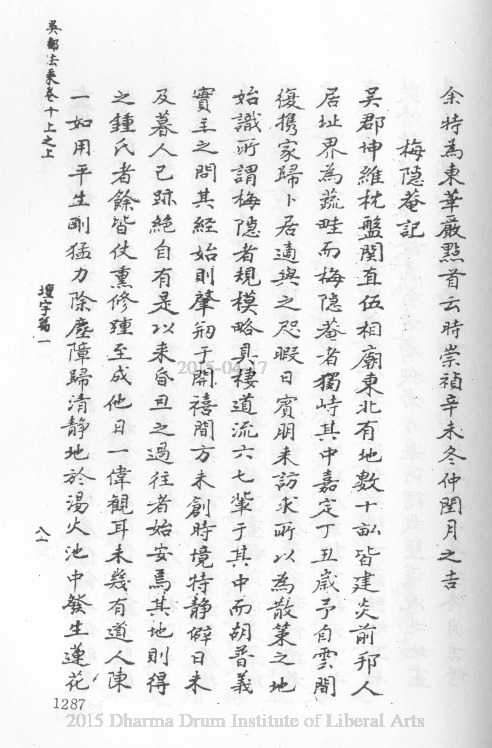 余特為東華嚴點首云時崇禎辛未冬仲閏月之吉
梅隱菴記
吳郡坤維枕盤関直伍相廟東北有地數十畝皆建炎前邦人
居址界為蔬畦而梅隱菴者獨峙其中嘉定丁丑歲予自雲間
復携家歸卜居適與之咫暇日賓朋未訪求所以為散策之地
始識所謂梅隱者規模略具棲道流六七輩于其中而胡普義
實主之問其經始則肇刱于開禧間方未創時境特静僻日未
及暮人已跡絶自有是以来昏旦之過往者始安焉其地則得
之鍾氏者餘皆仗熏修踵至成他日一偉觀耳未幾有道人陳
一如用平生剛猛力除塵障歸清静地於湯火池中發生蓮花
吳都法乘卷十上之上
壇宇篇一
八一
1287
2015-04-17
2015 Dharma Drum Institute of Liberal Arts